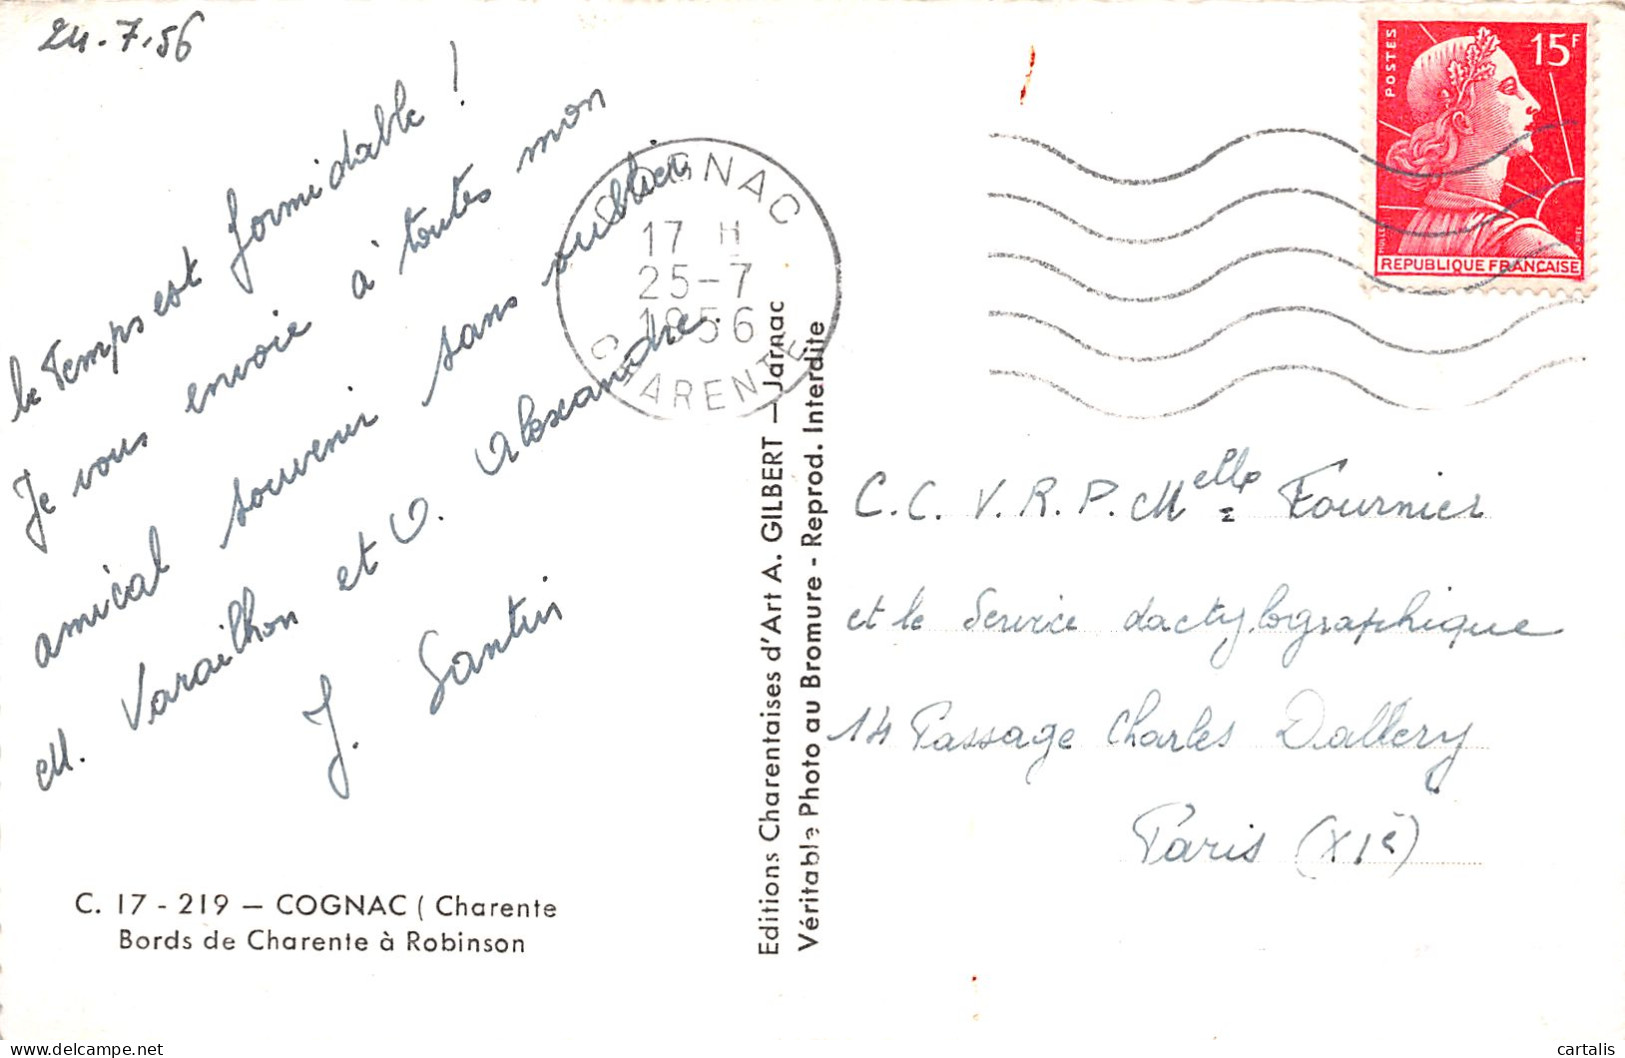 24.7.56
le Temps est formidable !
Je vous envoie à toutes mon
amical souvenir sans oublier
M. Varailhon et O. Alexandre.
J. Santin
C. 17 - 219 — COGNAC ( Charente
Bords de Charente à Robinson
Editions Charentaises d'Art A. GILBERT — Jarnac
Véritable Photo au Bromure - Reprod. Interdite
COGNAC
17 H
25-7
1956
CHARENTE
POSTES
15F
MULLER
REPUBLIQUE FRANÇAISE
C.C.V.R.P. Melle Fournier
et le Service dactylographique
14 Passage Charles Dallery
Paris (XIè)
delcampe.net
cartalis